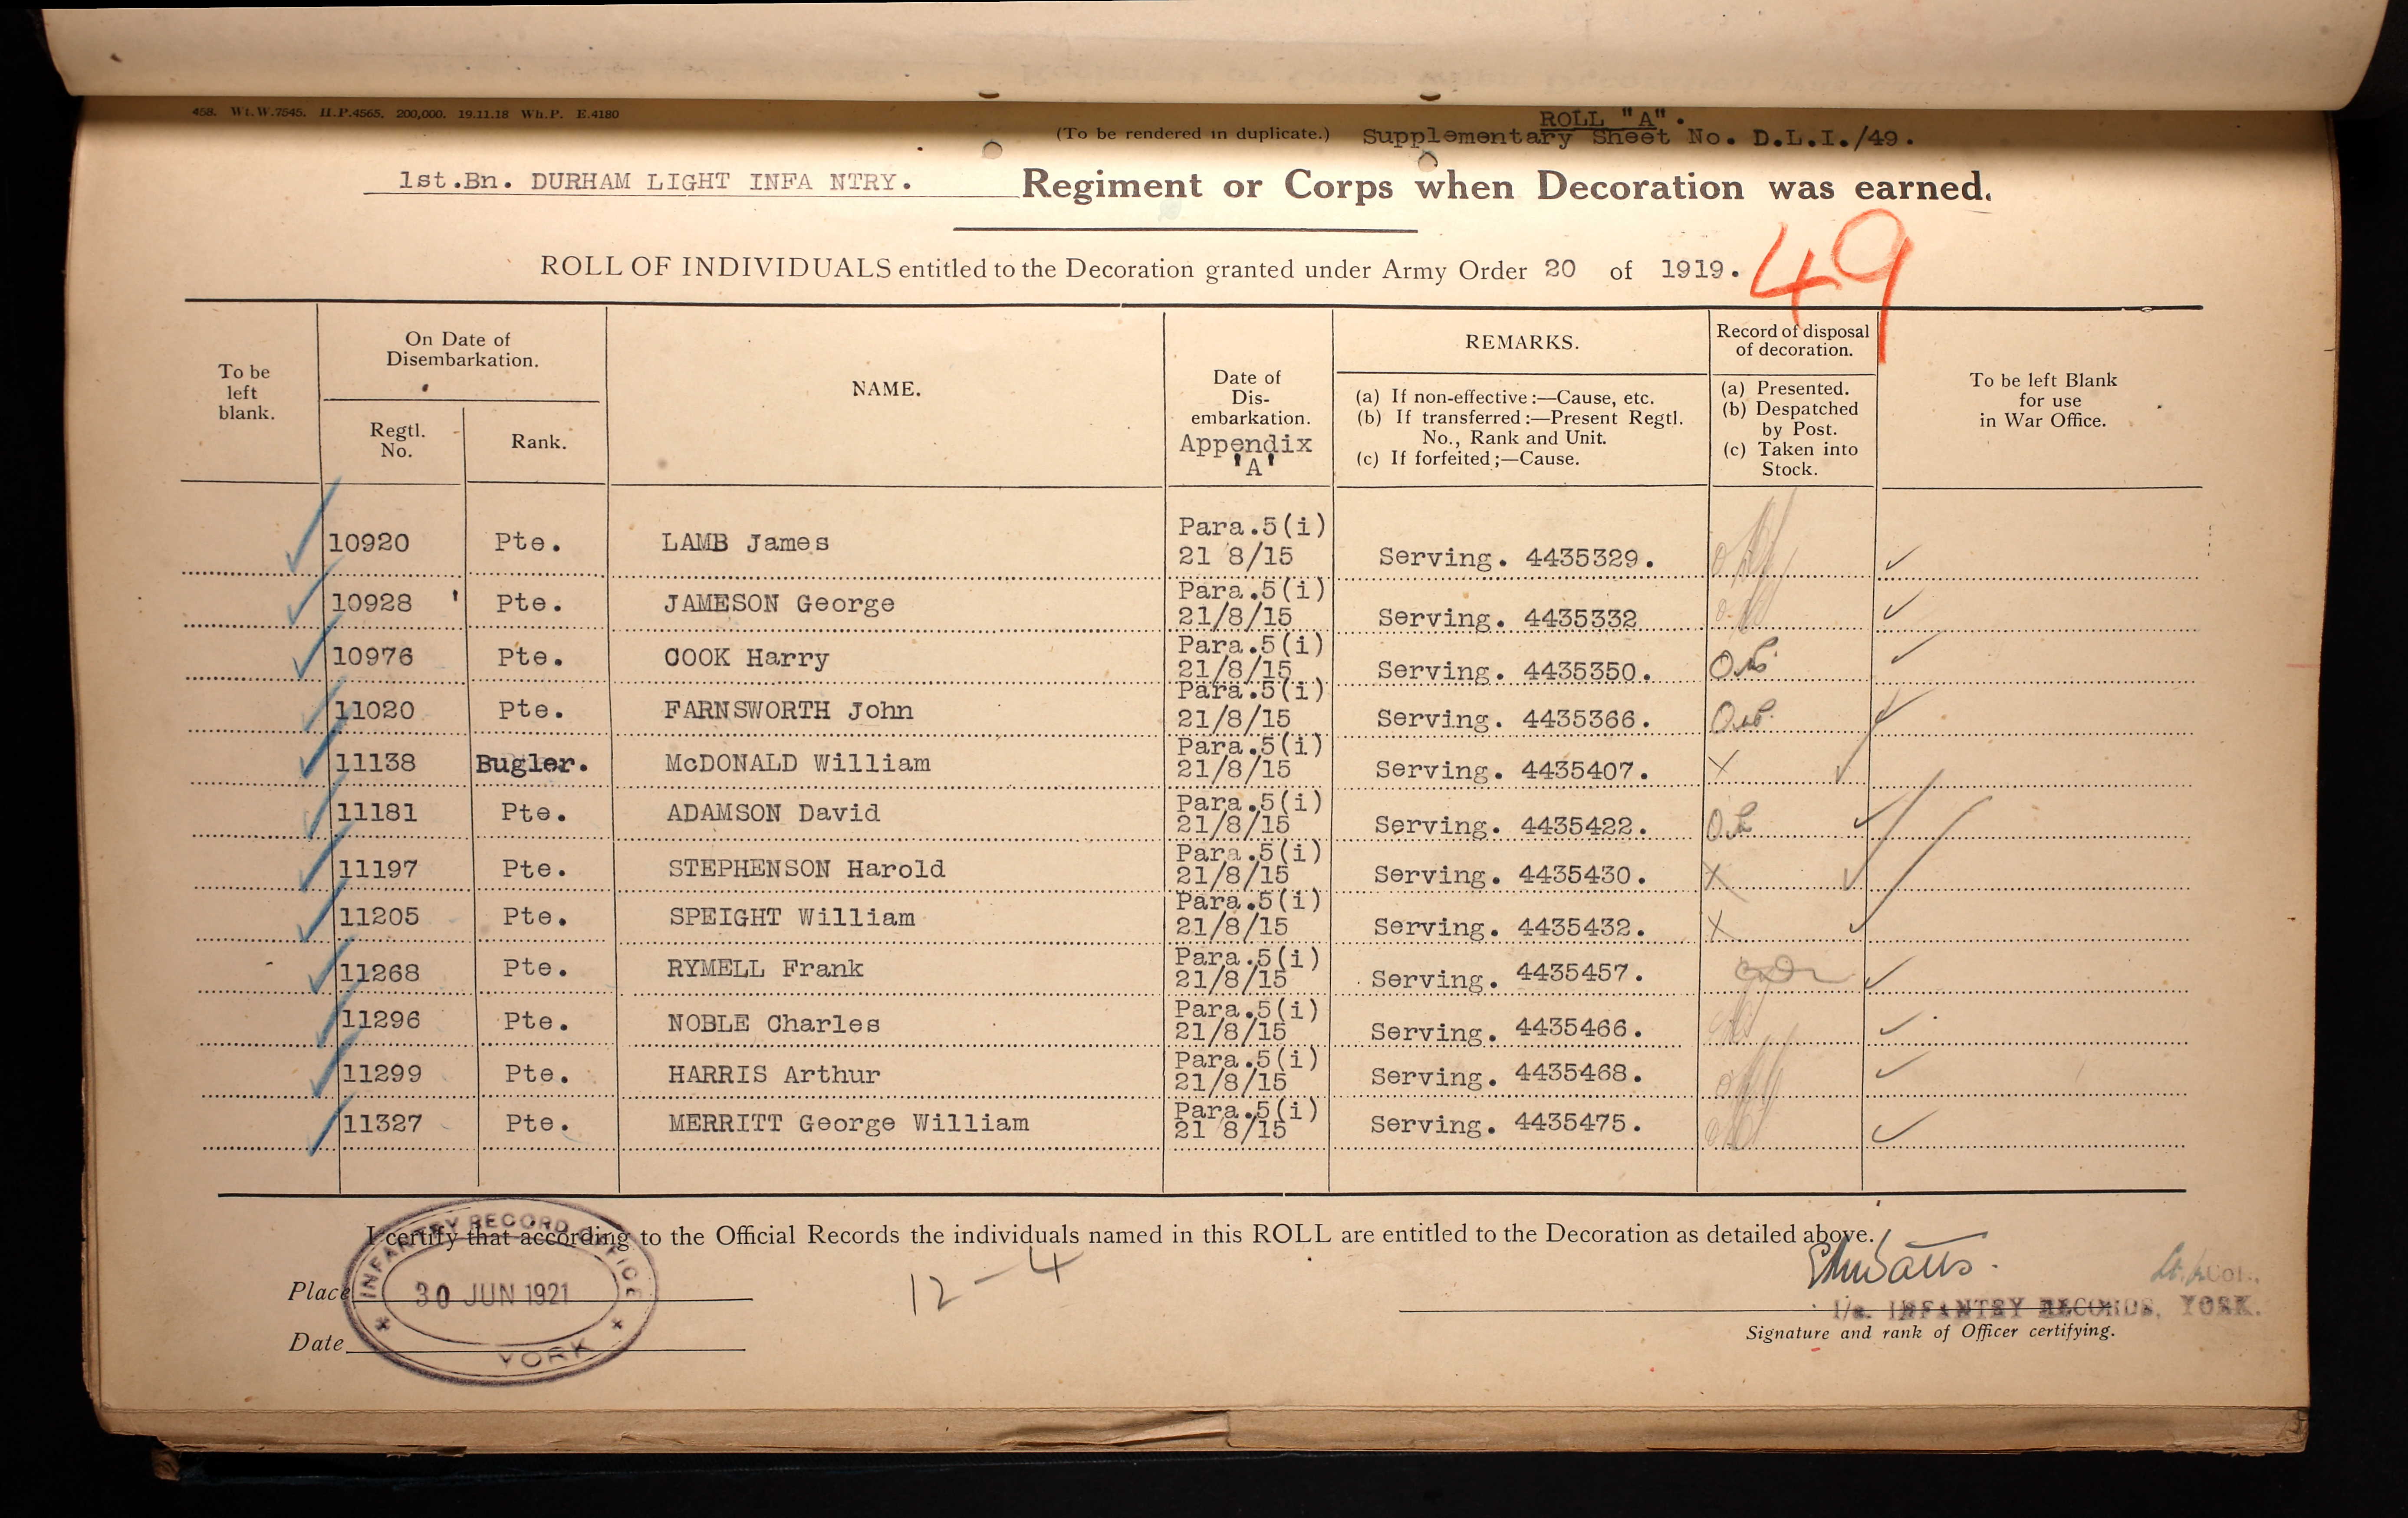 458. Wt.W.7545. H.P.4565. 200,000. 19.11.18 Wh.P. E.4180
ROLL "A".
(To be rendered in duplicate.) Supplementary Sheet No. D.L.I./49.
1st.Bn. DURHAM LIGHT INFA NTRY. Regiment or Corps when Decoration was earned.
ROLL OF INDIVIDUALS entitled to the Decoration granted under Army Order 20 of 1919.
49
To be
left
blank.
On Date of
Disembarkation.
Regtl.
No.
Rank.
NAME.
Date of
Dis-
embarkation.
Appendix
'A'
REMARKS.
(a) If non-effective:—Cause, etc.
(b) If transferred:—Present Regtl.
No., Rank and Unit.
(c) If forfeited;—Cause.
Record of disposal
of decoration.
(a) Presented.
(b) Despatched
by Post.
(c) Taken into
Stock.
To be left Blank
for use
in War Office.
Para.5(i)
10920 Pte. LAMB James 21 8/15 Serving. 4435329.
Para.5(i)
10928 ' Pte. JAMESON George 21/8/15 Serving. 4435332
Para.5(i)
10976 Pte. COOK Harry 21/8/15 Serving. 4435350.
Para.5(i)
11020 Pte. FARNSWORTH John 21/8/15 Serving. 4435366.
Para.5(i)
11138 Bugler. McDONALD William 21/8/15 Serving. 4435407. X
Para.5(i)
11181 Pte. ADAMSON David 21/8/15 Serving. 4435422.
Para.5(i)
11197 Pte. STEPHENSON Harold 21/8/15 Serving. 4435430. X
Para.5(i)
11205 Pte. SPEIGHT William 21/8/15 Serving. 4435432. X
Para.5(i)
11268 Pte. RYMELL Frank 21/8/15 Serving. 4435457.
Para.5(i)
11296 Pte. NOBLE Charles 21/8/15 Serving. 4435466.
Para.5(i)
11299 Pte. HARRIS Arthur 21/8/15 Serving. 4435468.
Para.5(i)
11327 Pte. MERRITT George William 21 8/15 Serving. 4435475.
I certify that according to the Official Records the individuals named in this ROLL are entitled to the Decoration as detailed above.
12 - 4
Place
Date
INFANTRY RECORD OFFICE
30 JUN 1921
YORK
Lt. Col.,
I/c. INFANTRY RECORDS, YORK.
Signature and rank of Officer certifying.